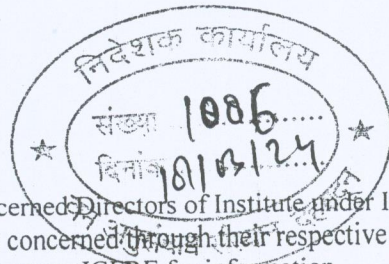 निदेशक कार्यालय
संख्या 1086
दिनांक 18/03/24
cerned Directors of Institute under I
concerned through their respective
ICFRE for information